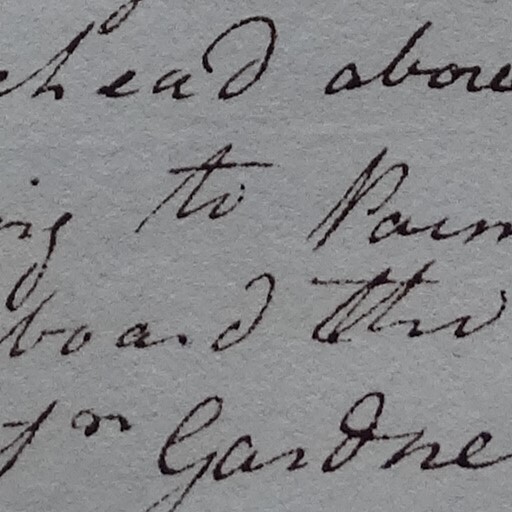 head above
ing to Parm
board the
Gardne